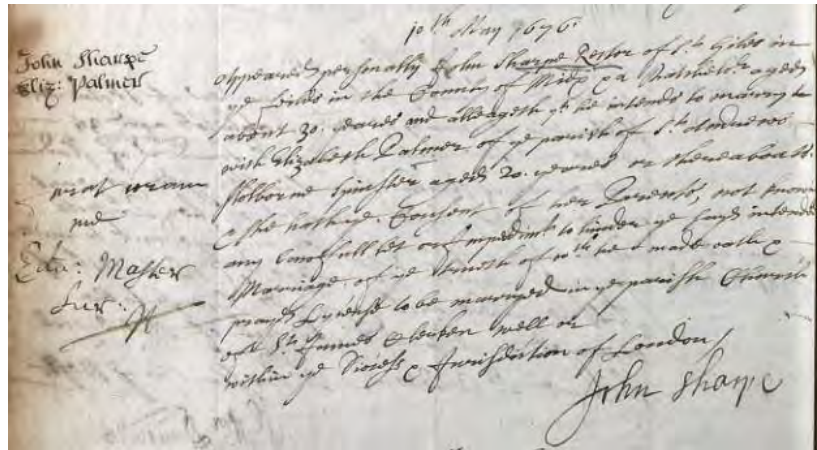 10th May 1676.
John Sharpe
Eliz: Palmer
appeared personally John Sharpe Rector of St. Giles in
ye fields in the County of Midx a Batchelor aged
about 30. yeares and alleageth yt he intends to marry
with Elizabeth Palmer of ye parish of St. Andrewes
Holborne Spinster aged 20. yeares or thereabouts.
& she hath ye Consent of her Parents, not knowing
any lawfull let or impedimt to hinder ye sayd intended
Marriage, of ye truth of wch he made oath &
prayed Lycense to be marryed in ye parish Church
of St. James Clerken well or
within ye Diocess & Jurisdiction of London
jurat coram
me
Edw: Master
Sur:
John Sharpe